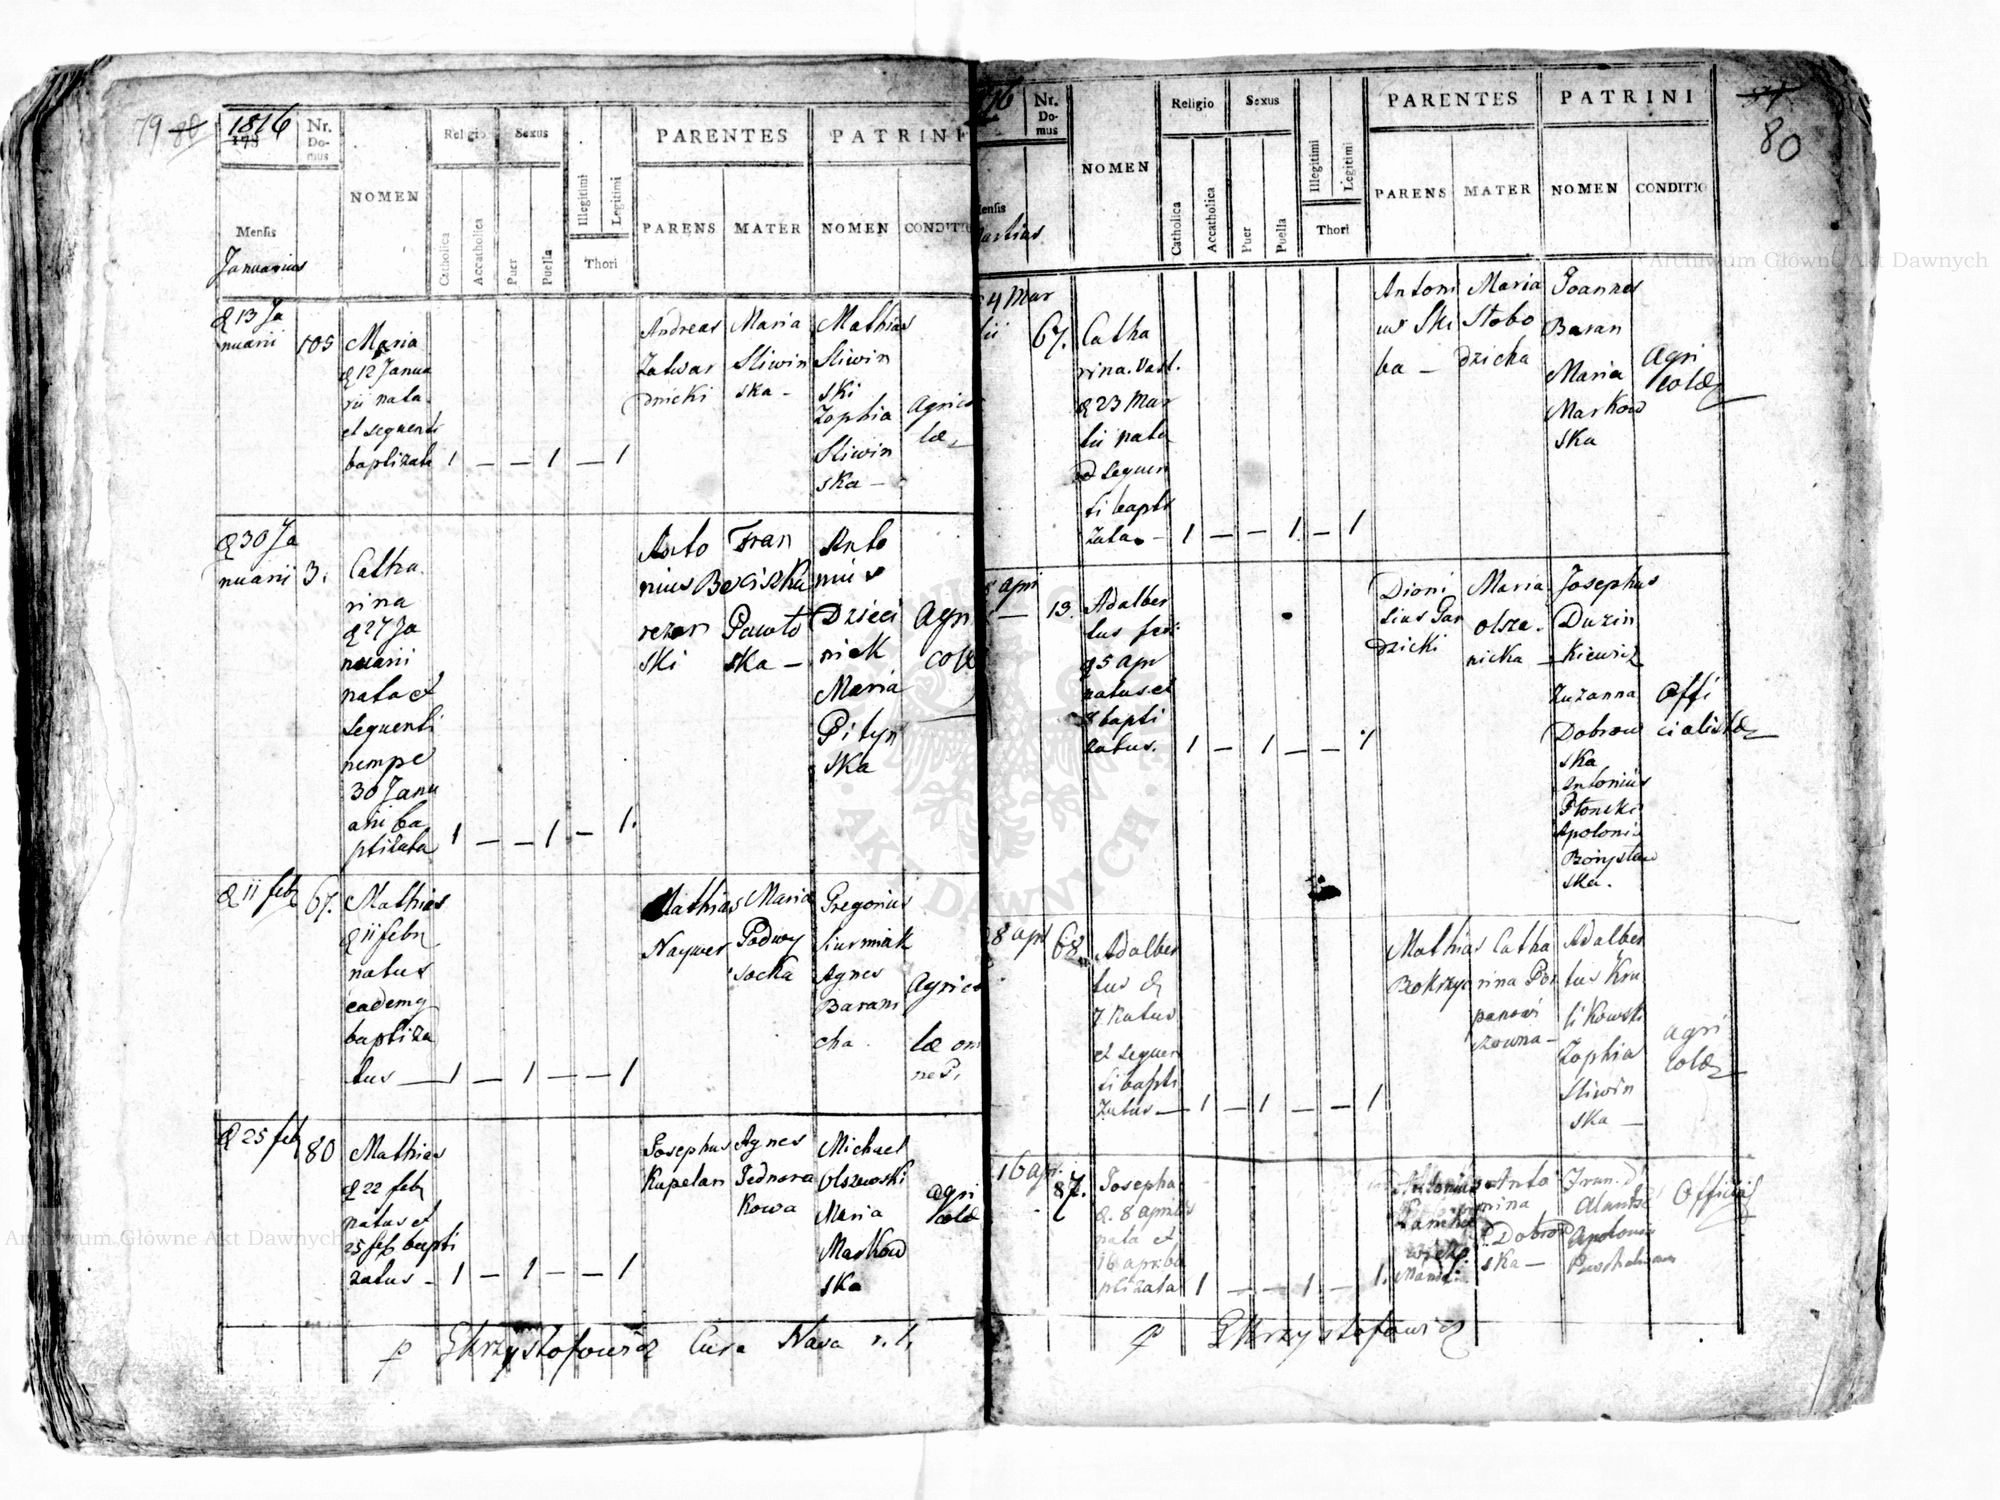 79 88
1816
178
Nr.
Do-
mus
Mensis
Januarius
NOMEN
Religio
Sexus
Catholica
Accatholica
Puer
Puella
Illegitimi
Legitimi
Thori
PARENTES
PARENS
MATER
PATRINI
NOMEN
CONDITIO
d 13 Ja
nuarii
105
Maria
d 12 Janua
rii nata
et sequenti
baptizata
1 — — 1 — 1
Andreas
Zatwar
dnicki
Maria
Sliwin
ska -
Mathias
Sliwin
ski
Zophia
Sliwin
ska —
Agrico
læ
d 30 Ja
nuarii
3.
Catha
rina
d 27 Ja
nuarii
nata et
sequenti
nempe
30 Janu
arii ba
ptizata
1 — — 1 — 1.
Anto
nius Be
rezow
ski
Fran
ciszka
Pawło
ska —
Anto
nius
Dzieci
nick
Maria
Pityn
ska
Agri
colæ
d 11 feb
67.
Mathias
d 11 febr
natus
eademq
baptiza
tus — 1 — 1 — — 1
Mathias
Naywer
Maria
Podwy
socka
Gregorius
Siurmiak
Agnes
Barani
cha
Agrico
læ om
nes.
d 25 feb
80
Mathias
d 22 feb
natus et
25 feb bapti
zatus — 1 — 1 — — 1
Josephus
Kapelan
Agnes
Jednora
kowa
Michael
Olszewski
Maria
Markow
ska
Agri
colæ
Krzysztofowicz Cura
80
Nr.
Do-
mus
NOMEN
Religio
Sexus
Catholica
Accatholica
Puer
Puella
Illegitimi
Legitimi
Thori
PARENTES
PARENS
MATER
PATRINI
NOMEN
CONDITIO
4 Mar
tii
67.
Catha
rina.
d 23 Mar
tii nata
d sequen
ti bapti
zata —
1 — — 1 — 1
Antoni
us Ski
ba —
Maria
Słobo
dzicha
Joannes
Baran
Maria
Markow
ska
Agri
colæ
8 apri
13.
Adalber
tus
d 5 apr
natus et
8 bapti
zatus.
1 — 1 — — 1
Dioni
sius Gar
dzicki
Maria
Olsza
nicka —
Josephus
Duzin
kiewicz
Zuzanna
Dobrow
ska
Antonius
Płonski
Apolonia
Borysław
ska.
Offi
cialistæ
8 apr
68
Adalber
tus d
7 natus
et sequen
ti bapti
zatus — 1 — 1 — — 1
Mathias
Bokrzyc
Catha
rina
Adalber
tus Kru
likowski
Zophia
Sliwin
ska —
Agri
colæ
16 apr.
87.
Josepha
d. 8 aprilis
nata et
16 apr. ba
ptizata 1 — — 1 — 1.
Antonius
Anto
nina
Dobro
ska —
Apolonia
Krzysztofowicz
Archiwum Główne Akt Dawnych
Archiwum Główne Akt Dawnych
AKT DAWNYCH